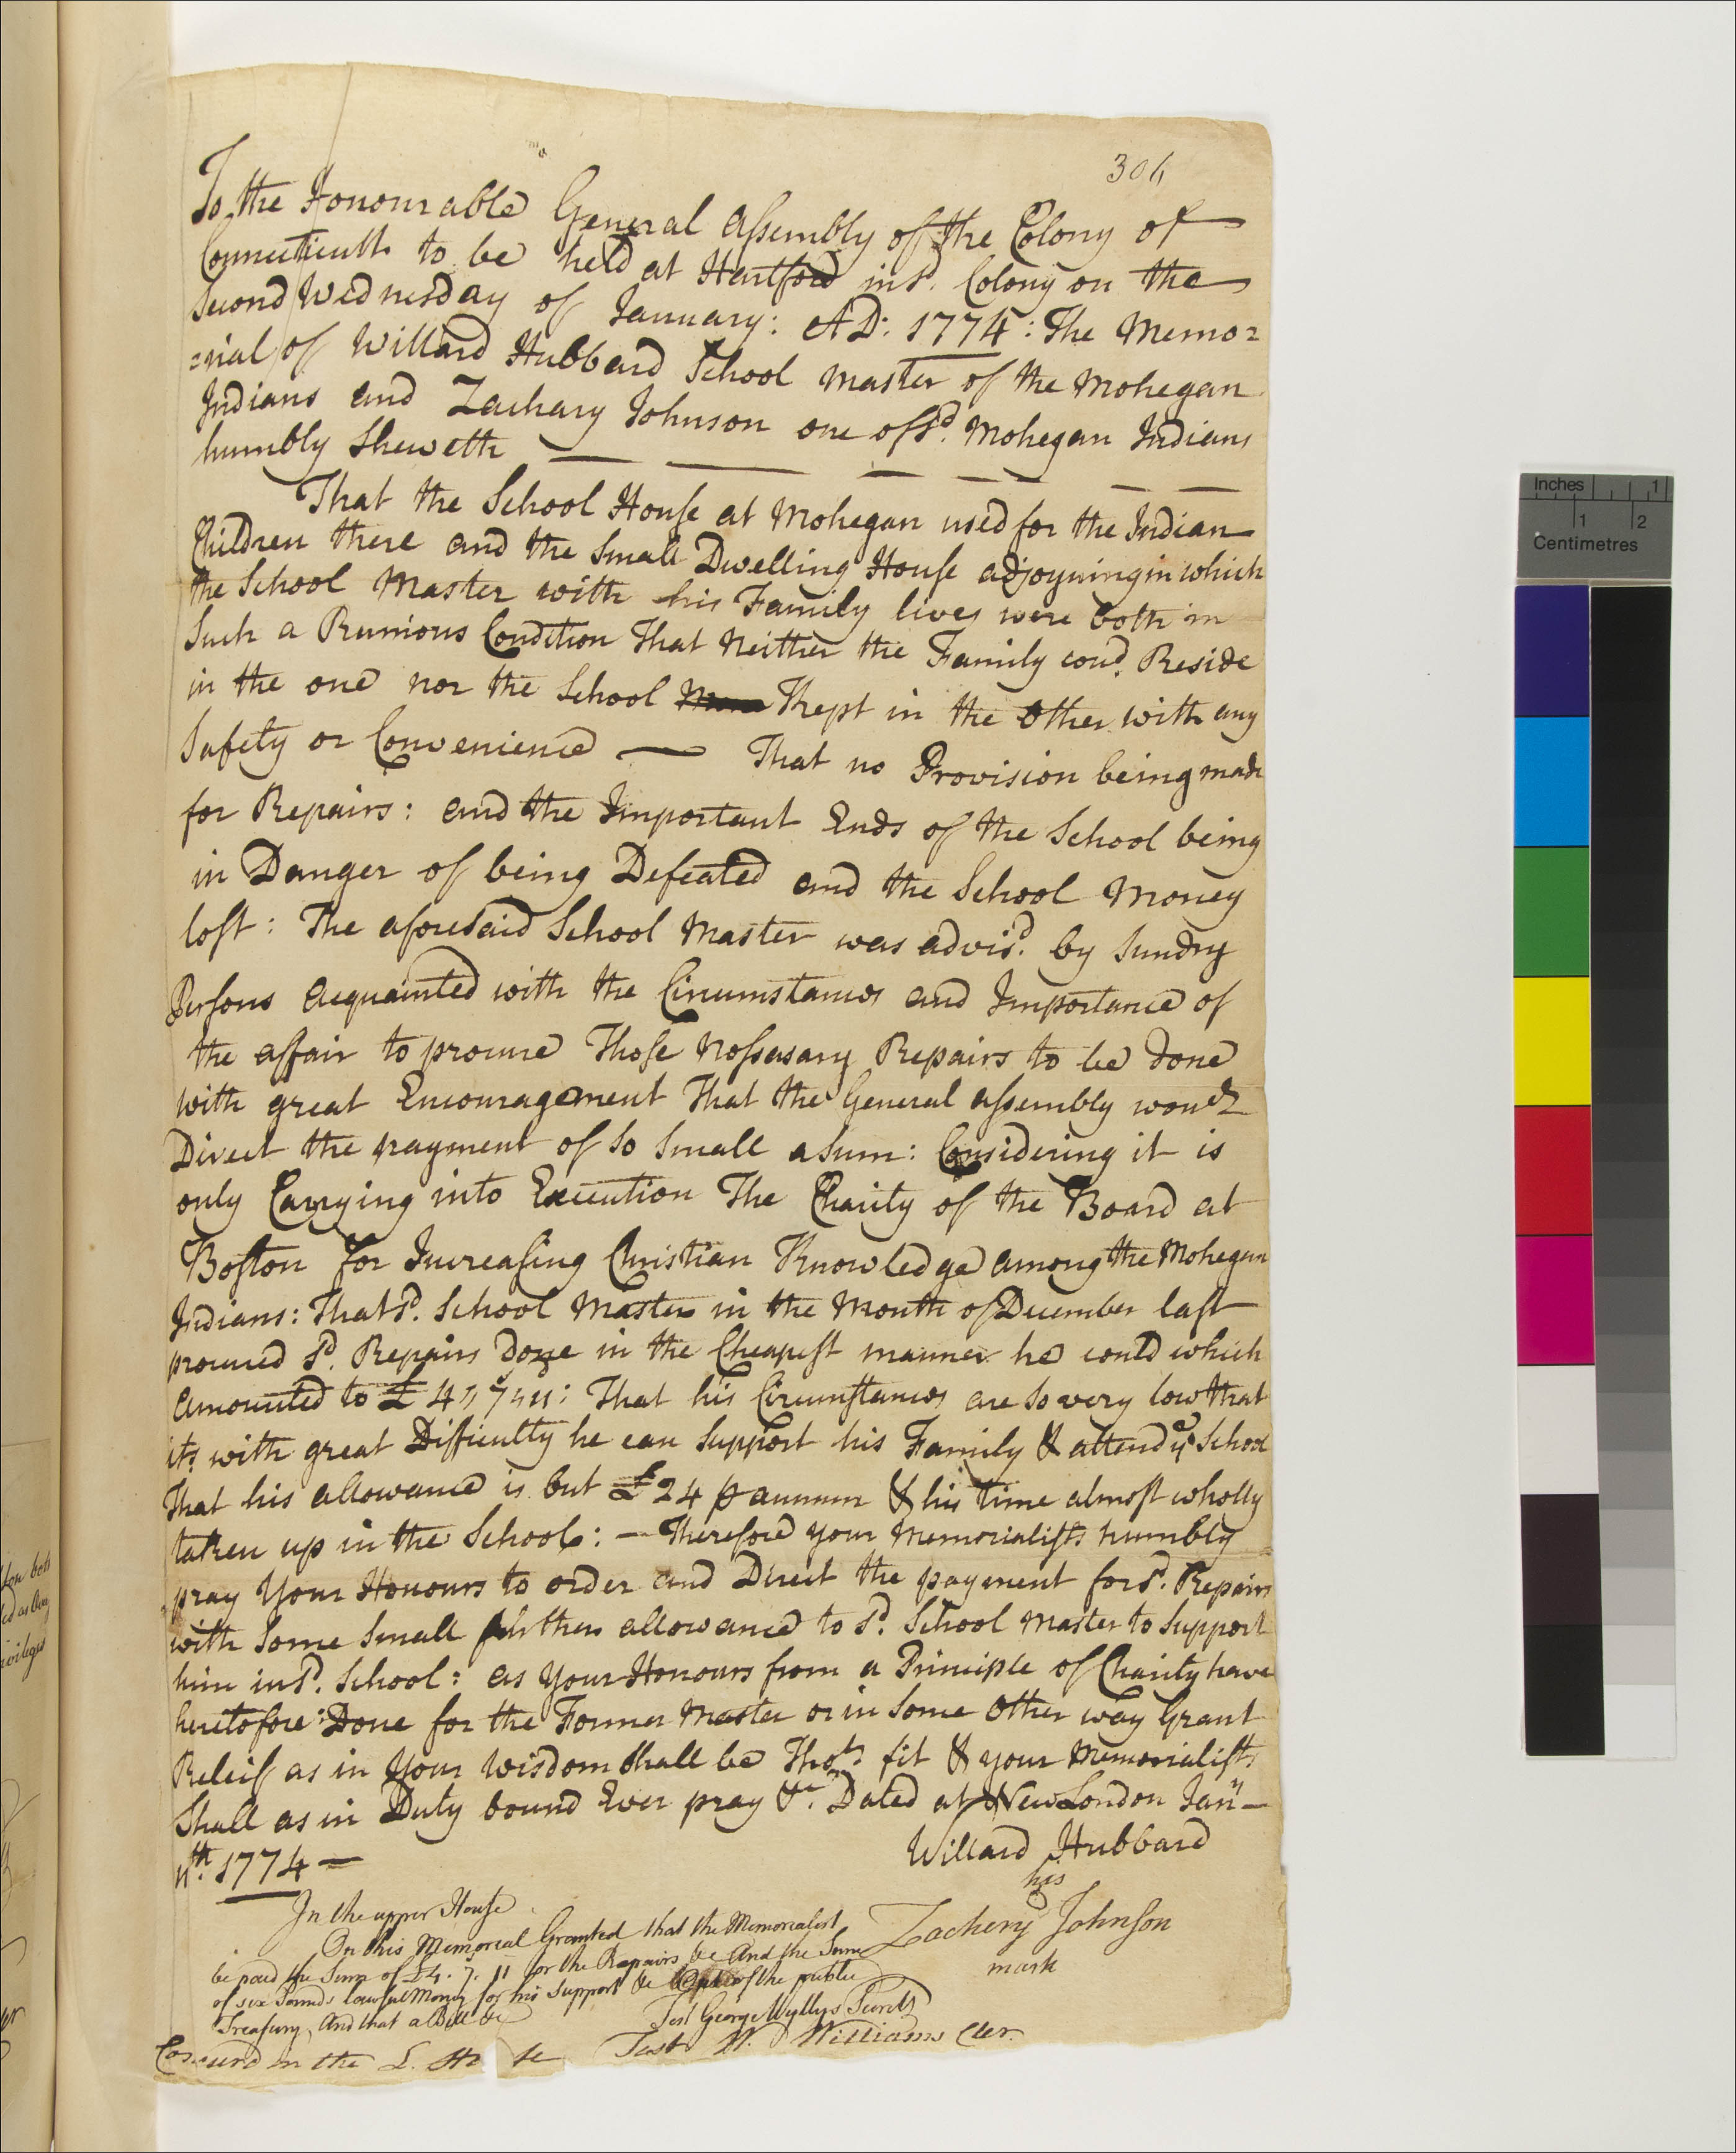 306
To the Honourable General Assembly of the Colony of
Connecticutt to be held at Hartford in sd. Colony on the
Second Wednesday of January: AD: 1774: The Memo=
=rial of Willard Hubbard School Master of the Mohegan
Indians and Zachary Johnson one of sd. Mohegan Indians
humbly Sheweth
That the School House at Mohegan used for the Indian
Children there and the Small Dwelling House adjoyning in which
the School Master with his Family lives were both in
Such a Ruinious Condition That Neither the Family coud. Reside
in the one nor the School Kept in the Other with any
Safety or Convenience — That no Provision being made
for Repairs: and the Important Ends of the School being
in Danger of being Defeated and the School Money
lost: The aforesaid School Master was advisd. by Sundry
Persons acquainted with the Circumstances and Importance of
the affair to procure Those Nessasary Repairs to be done
with great Encouragement That the General Assembly woud
Direct the payment of So Small a Sum: Considering it is
only Carrying into Execution The Charity of the Board at
Boston for Increasing Christian Knowledge among the Mohegan
Indians: That sd. School Master in the Month of December last
procured sd. Repairs Done in the Cheapest manner he could which
amounted to £4"7"11: That his Circumstances are So very low that
its with great Difficulty he can Support his Family & attend ye School
That his allowance is but £24 ⅌ annum & his time almost wholly
taken up in the School: — Therefore your Memorialists humbly
pray Your Honours to order and Direct the payment for sd. Repairs
with Some Small allowance to sd. School Master to Support
him in sd. School: as Your Honours from a Principle of Charity have
heretofore Done for the Former Master or in Some Other way Grant
Releif as in Your Wisdom Shall be Thot. fit & your Memorialists
Shall as in Duty bound Ever pray &c. Dated at New London Jany —
11th. 1774 —
Willard Hubbard
his
Zachery Johnson
mark
In the upper House
On this Memorial Granted that the Memorialist
be paid the Sum of £4. 7. 11 for the Repairs &c And the Sum
of six Pounds Lawful Money for his Support &c of the public
Treasury, And that a Bill &c
Test George Wyllys Secrety
Concurd in the L. H
Test W. Williams Cler.
You both